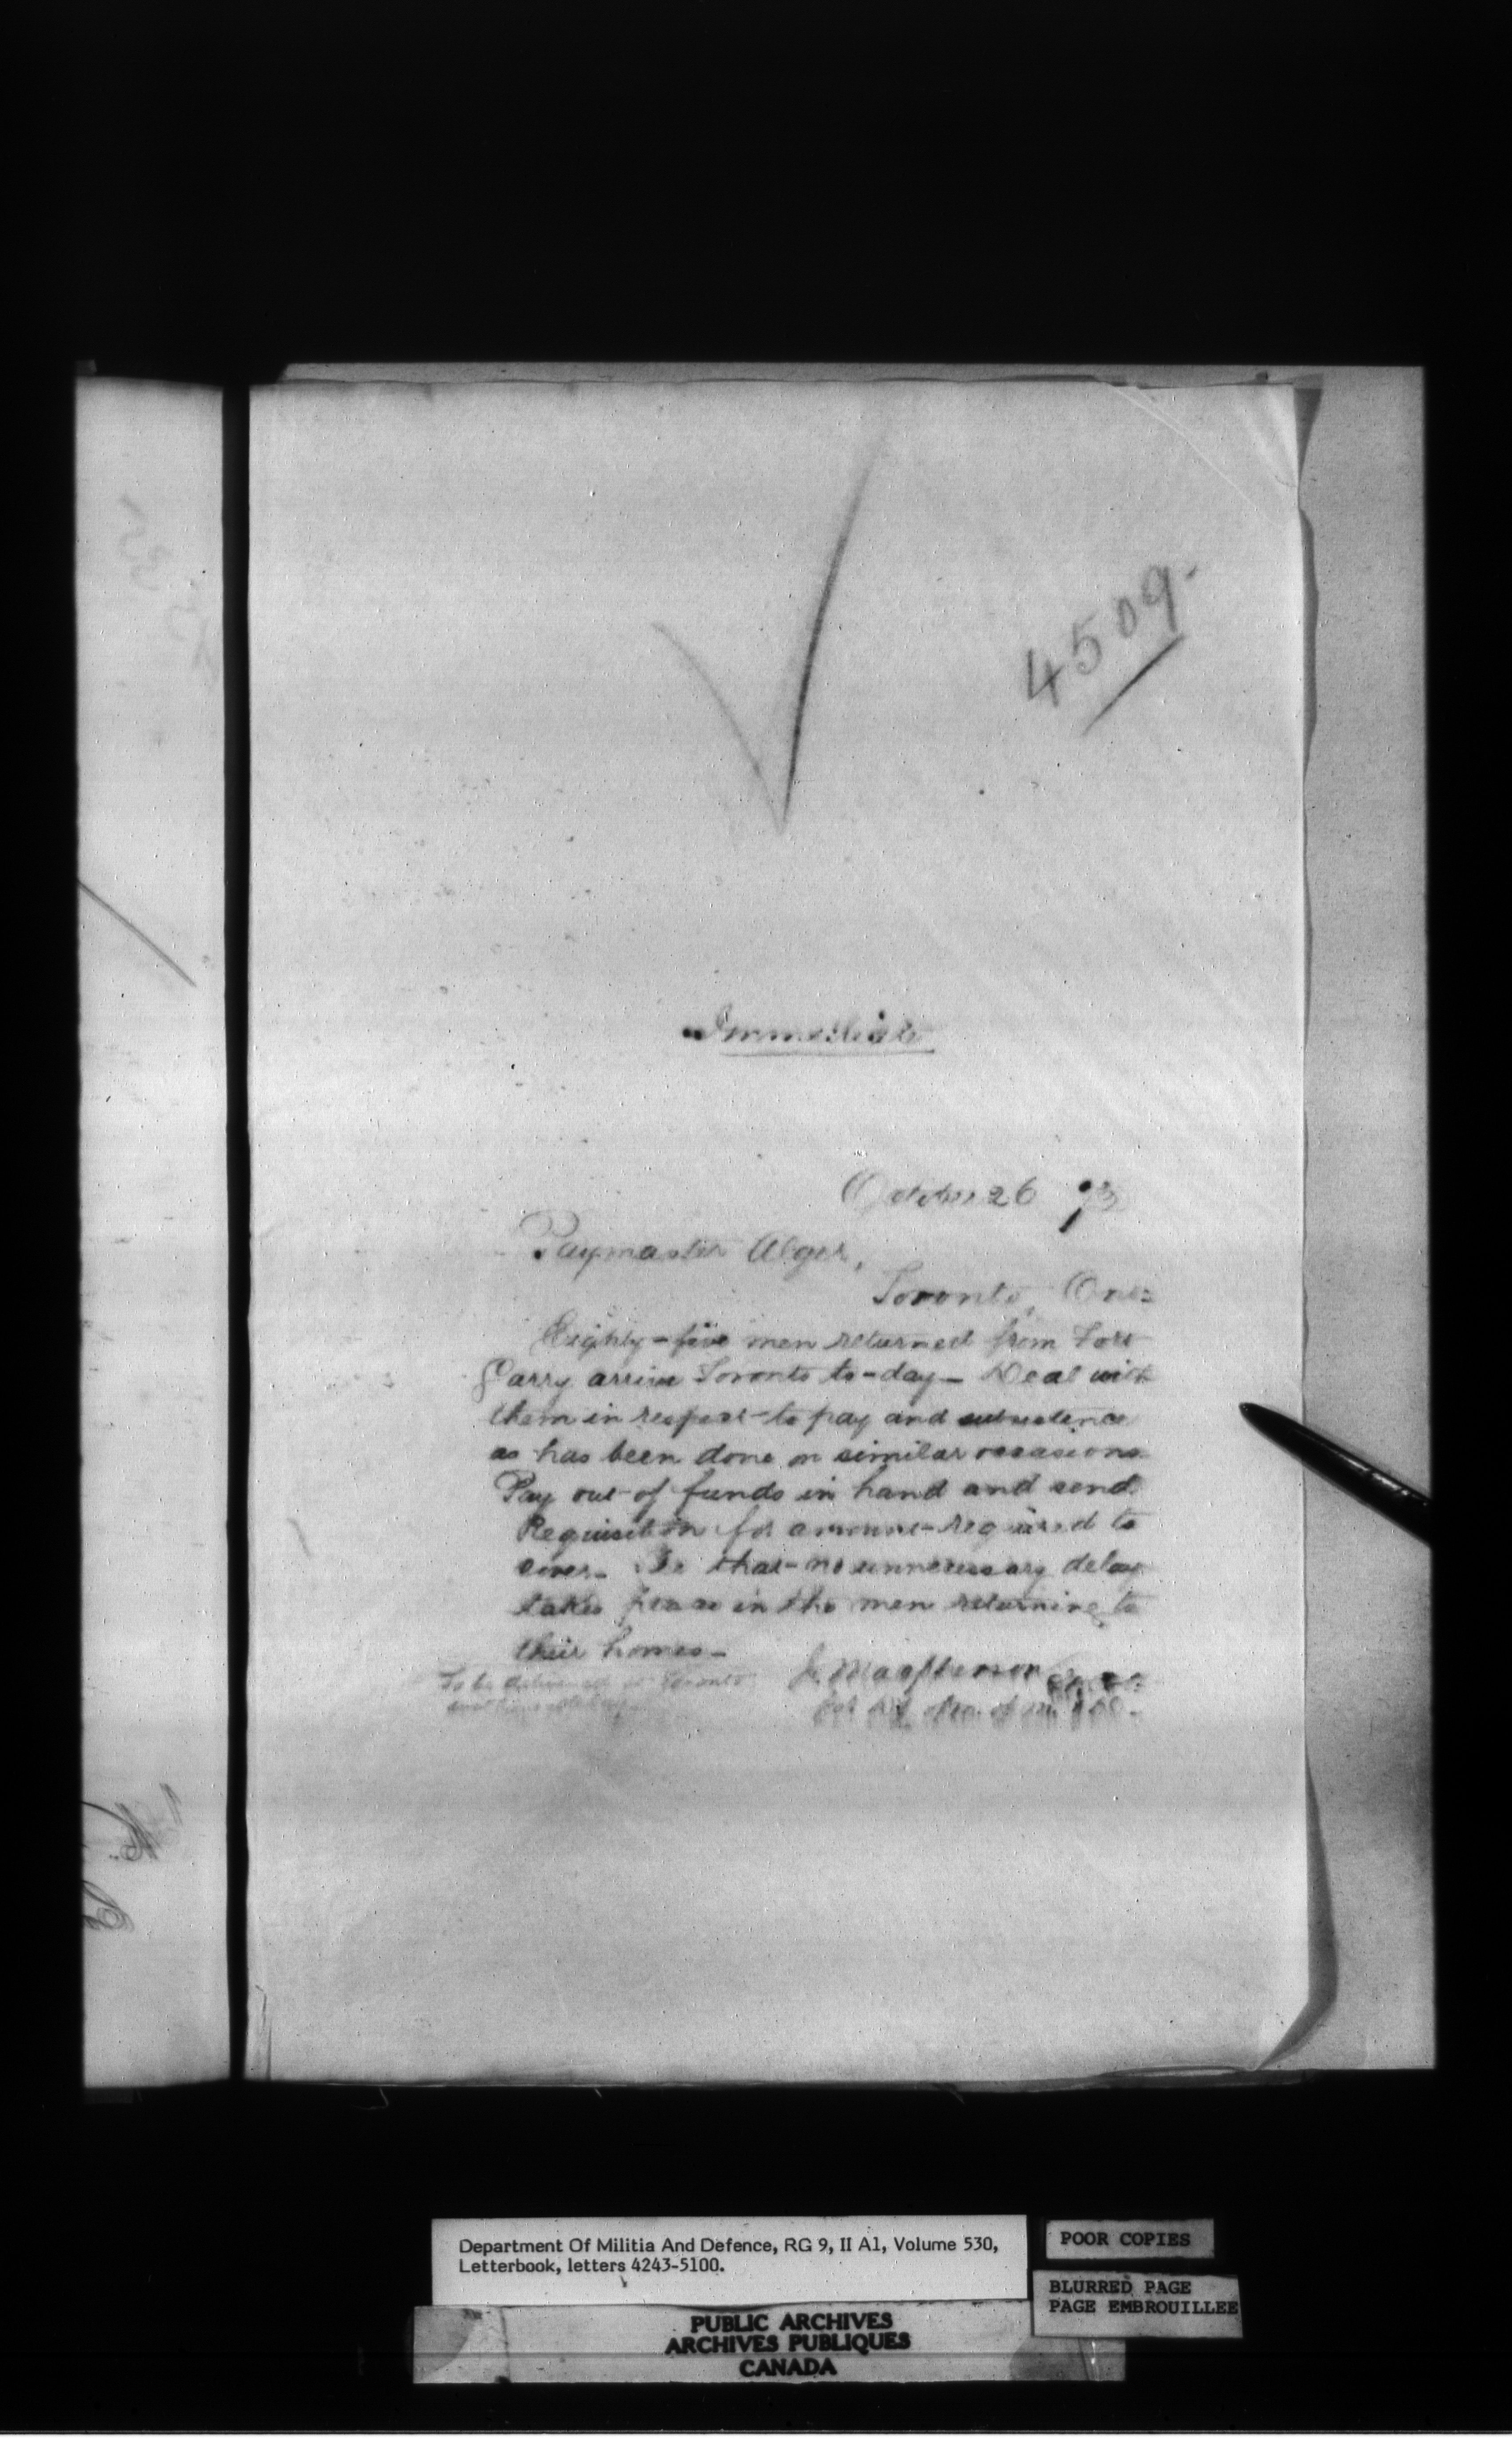 4509.
Immediate
October 26 73
Paymaster Alger,
Toronto, Ont:
Eighty-five men returned from Fort
Garry arrive Toronto to-day - Deal with
them in respect to pay and subsistence
as has been done on similar occasions.
Pay out of funds in hand and send
Requisition for amount required to
cover. See that no unnecessary delay
takes place in the men returning to
their homes -
To be delivered in Toronto
J. Macpherson
for of
Department Of Militia And Defence, RG 9, II A1, Volume 530,
Letterbook, letters 4243-5100.
POOR COPIES
BLURRED PAGE
PAGE EMBROUILLEE
PUBLIC ARCHIVES
ARCHIVES PUBLIQUES
CANADA